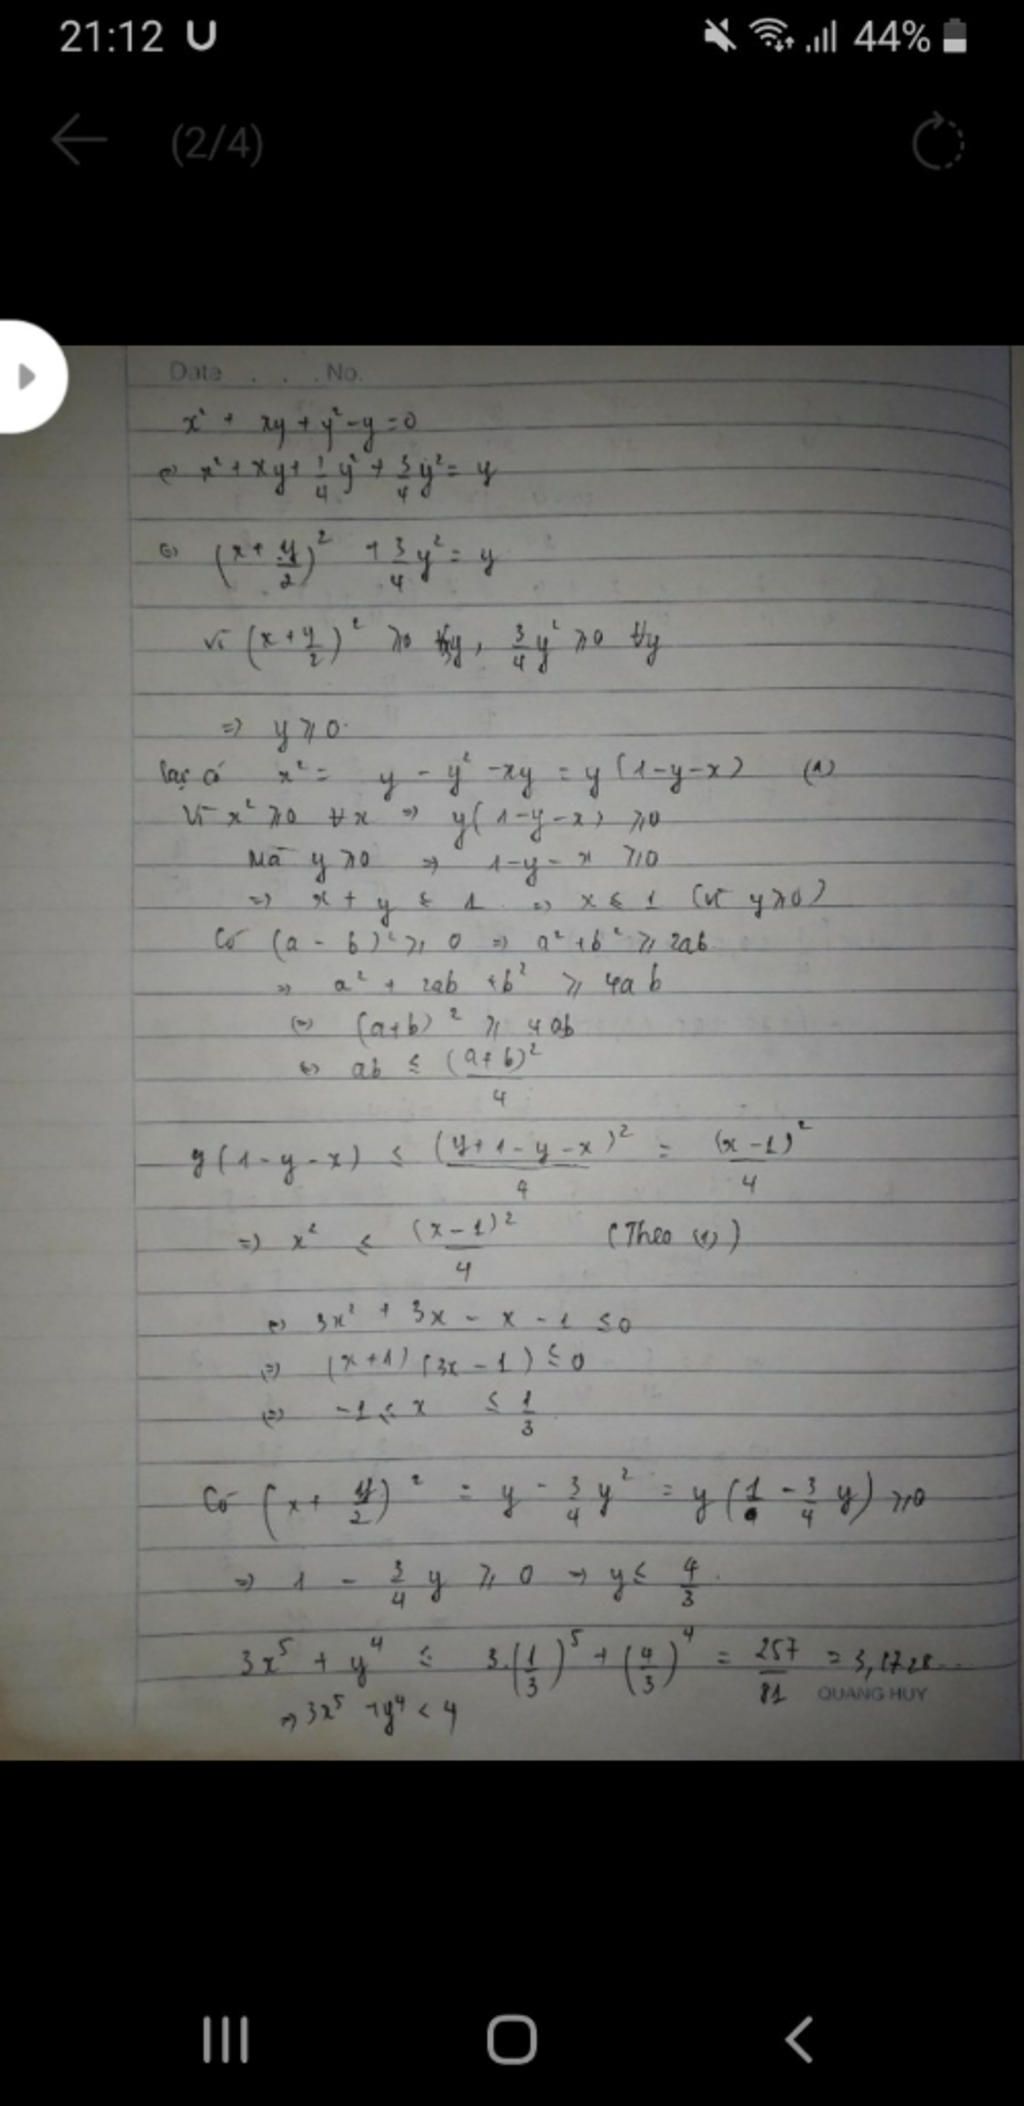 21:12 U 44%
(2/4)
Date . . . No.
x² + xy + y² - y = 0
⇔ x² + xy + 1/4 y² + 3/4 y² = y
⇔ (x + y/2)² + 3/4 y² = y
Vì (x + y/2)² ≥ 0 ∀x,y, 3/4 y² ≥ 0 ∀y
⇒ y ≥ 0.
lại có x² = y - y² - xy = y(1-y-x) (1)
Vì x² ≥ 0 ∀x ⇒ y(1-y-x) ≥ 0
Mà y ≥ 0 ⇒ 1-y-x ≥ 0
⇒ x + y ≤ 1 ⇒ x ≤ 1 (Vì y ≥ 0)
Có (a - b)² ≥ 0 ⇒ a² + b² ≥ 2ab
⇒ a² + 2ab + b² ≥ 4ab
⇔ (a+b)² ≥ 4ab
⇔ ab ≤ (a+b)²/4
y(1-y-x) ≤ (y+1-y-x)²/4 = (x-1)²/4
⇒ x² ≤ (x-1)²/4 (Theo (1))
⇔ 3x² + 3x - x - 1 ≤ 0
⇔ (x+1)(3x-1) ≤ 0
⇔ -1 ≤ x ≤ 1/3
Có (x + y/2)² = y - 3/4 y² = y(1 - 3/4 y) ≥ 0
⇒ 1 - 3/4 y ≥ 0 → y ≤ 4/3.
3x⁵ + y⁴ ≤ 3.(1/3)⁵ + (4/3)⁴ = 257/81 = 3,1728...
QUANG HUY
⇒ 3x⁵ + y⁴ < 4